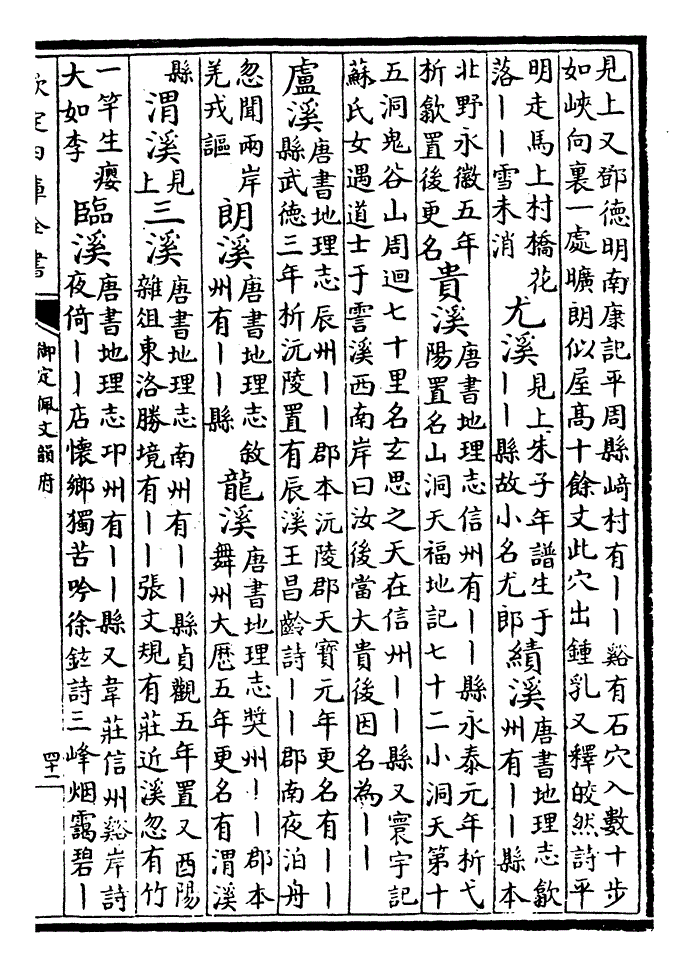 見上又鄧德明南康記平周縣﨑村有丨丨谿有石穴入數十步
如峽向裏一處曠朗似屋髙十餘丈此穴出鍾乳又釋皎然詩平
明走馬上村橋花
落丨丨雪未消
尤溪
見上朱子年譜生于
丨丨縣故小名尤郎
績溪
唐書地理志歙
州有丨丨縣本
北野永徽五年
析歙置後更名
貴溪
唐書地理志信州有丨丨縣永泰元年析弋
陽置名山洞天福地記七十二小洞天第十
五洞鬼谷山周迴七十里名玄思之天在信州丨丨縣又寰宇記
蘇氏女遇道士于雩溪西南岸曰汝後當大貴後因名為丨丨
盧溪
唐書地理志辰州丨丨郡本沅陵郡天寶元年更名有丨丨
縣武德三年析沅陵置有辰溪王昌齡詩丨丨郡南夜泊舟
忽聞兩岸
羌戎謳
朗溪
唐書地理志敘
州有丨丨縣
龍溪
唐書地理志奬州丨丨郡本
舞州大歴五年更名有渭溪
縣
渭溪
見
上
三溪
唐書地理志南州有丨丨縣貞觀五年置又酉陽
雜俎東洛勝境有丨丨張文規有莊近溪忽有竹
一竿生癭
大如李
臨溪
唐書地理志邛州有丨丨縣又韋莊信州谿岸詩
夜倚丨丨店懷鄉獨苦吟徐鉉詩三峰烟靄碧丨
欽定四庫全書
御定佩文韻府
四十二